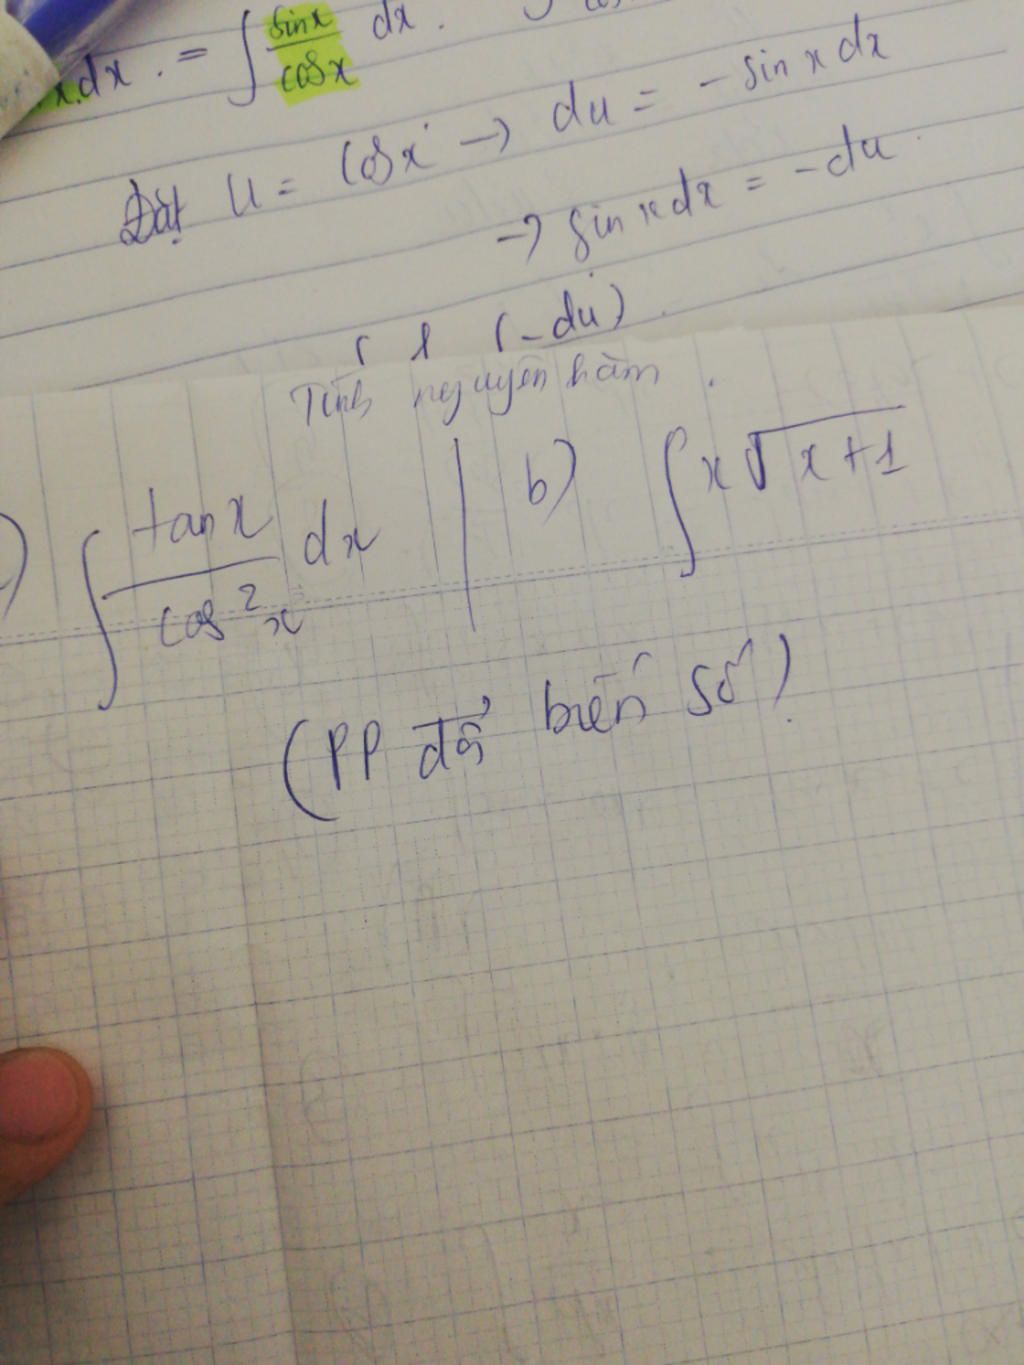 x.dx . = ∫ sinx/cosx dx .
Đặt u = cosx → du = - sin x dx
→ sin x dx = - du .
(-du)
Tính nguyên hàm .
) ∫ tanx/cos²x dx | b) ∫ x√x+1
(PP đổi biến số)